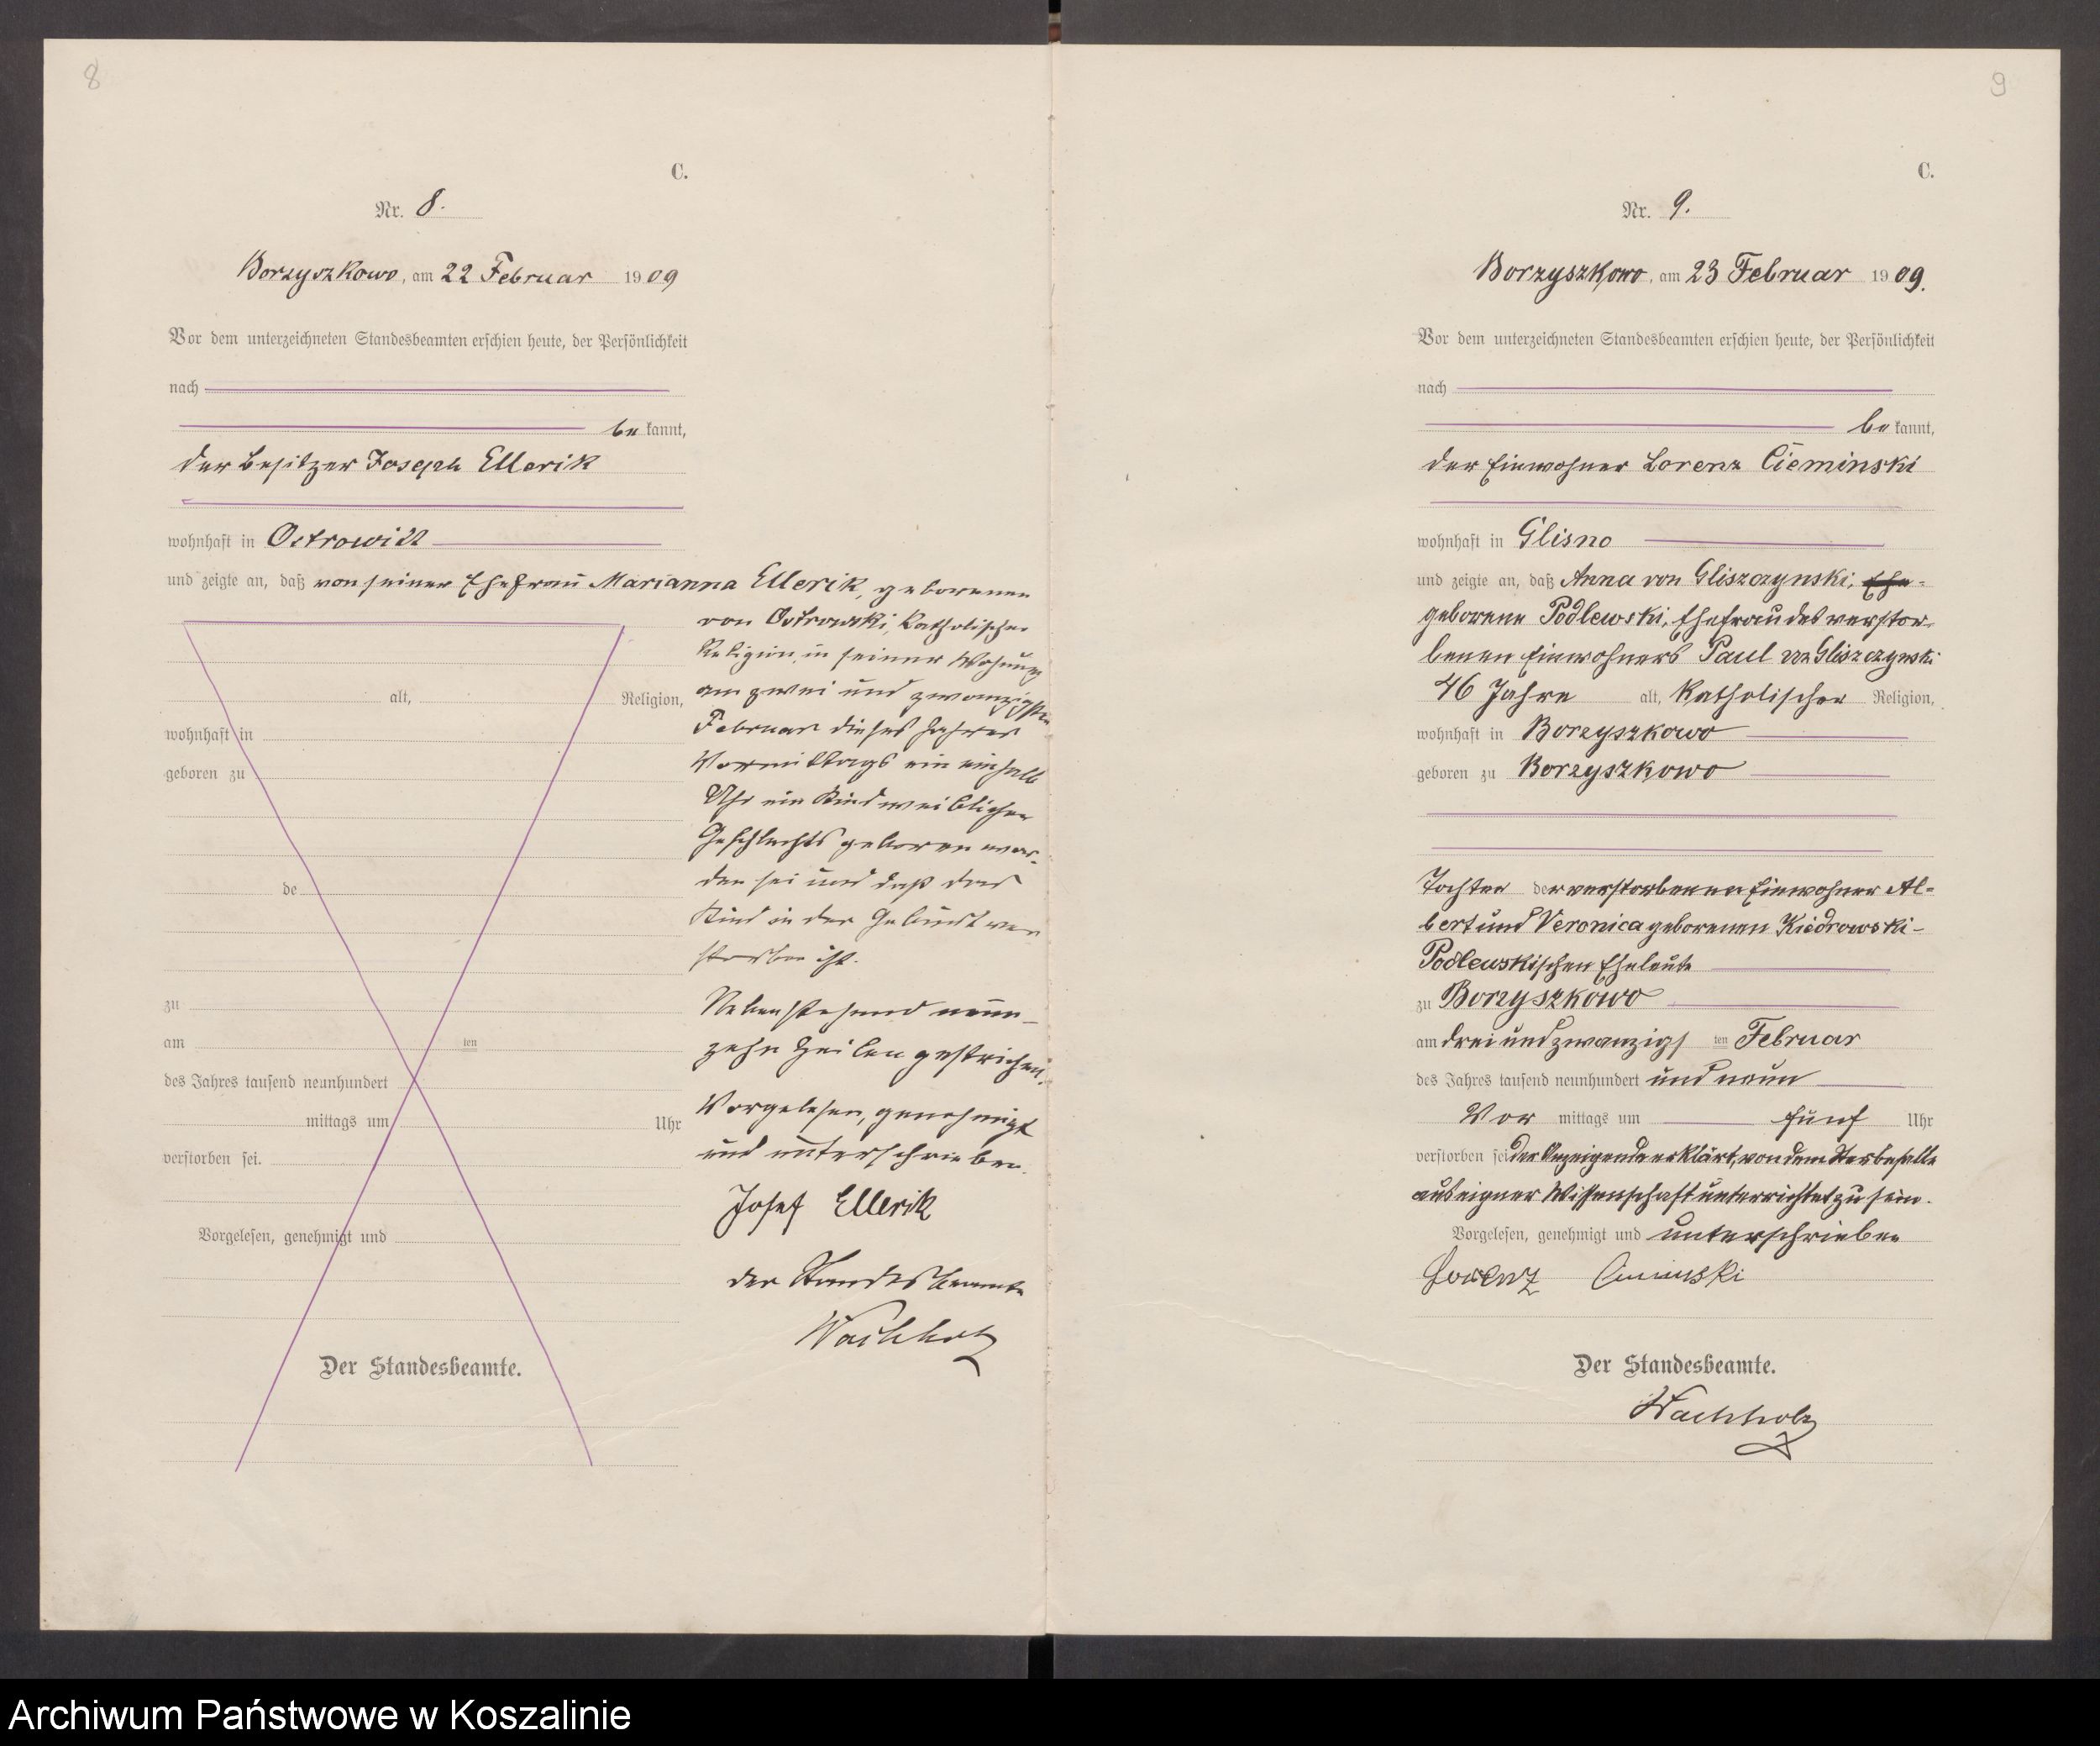 8
C.
Nr. 8.
Borzyszkowo, am 22 Februar 1909
Vor dem unterzeichneten Standesbeamten erschien heute, der Persönlichkeit
nach
be kannt,
der Besitzer Joseph Ellerik
wohnhaft in Ostrowitt
und zeigte an, daß von seiner Ehefrau Marianna Ellerik, geborenen
von Ostrowski, katholischer
Religion, in seiner Wohnung
am zwei und zwanzigsten
Februar dieses Jahres
Vormittags ein einhalb
Uhr ein Kind weiblichen
Geschlechts geboren wor-
den sei und daß das
Kind in der Geburt ver
storben ist.
Nebenstehend neun-
zehn Zeilen gestrichen.
Vorgelesen, genehmigt
und unterschrieben.
Josef Ellerik
der Standesbeamte
Wachholz
alt, Religion,
wohnhaft in
geboren zu
de
zu
am ten
des Jahres tausend neunhundert
mittags um Uhr
verstorben sei.
Vorgelesen, genehmigt und
Der Standesbeamte.
9
C.
Nr. 9.
Borzyszkowo, am 23 Februar 1909.
Vor dem unterzeichneten Standesbeamten erschien heute, der Persönlichkeit
nach
be kannt,
der Einwohner Lorenz Cieminski
wohnhaft in Glisno
und zeigte an, daß Anna von Gliszczynski, Ehe-
geborene Podlewski, Ehefrau des verstor-
benen Einwohners Paul von Gliszczynski
46 Jahre alt, katholischer Religion,
wohnhaft in Borzyszkowo
geboren zu Borzyszkowo
Tochter der verstorbenen Einwohner Al-
bert und Veronica geborenen Kiedrowski-
Podlewskischen Eheleute
zu Borzyszkowo
am drei und zwanzigs ten Februar
des Jahres tausend neunhundert und neun
Vor mittags um fünf Uhr
verstorben sei der Anzeigende erklärt, von dem Sterbefalle
aus eigner Wissenschaft unterrichtet zu sein.
Vorgelesen, genehmigt und unterschrieben
Lorenz Cieminski
Der Standesbeamte.
Wachholz
Archiwum Państwowe w Koszalinie